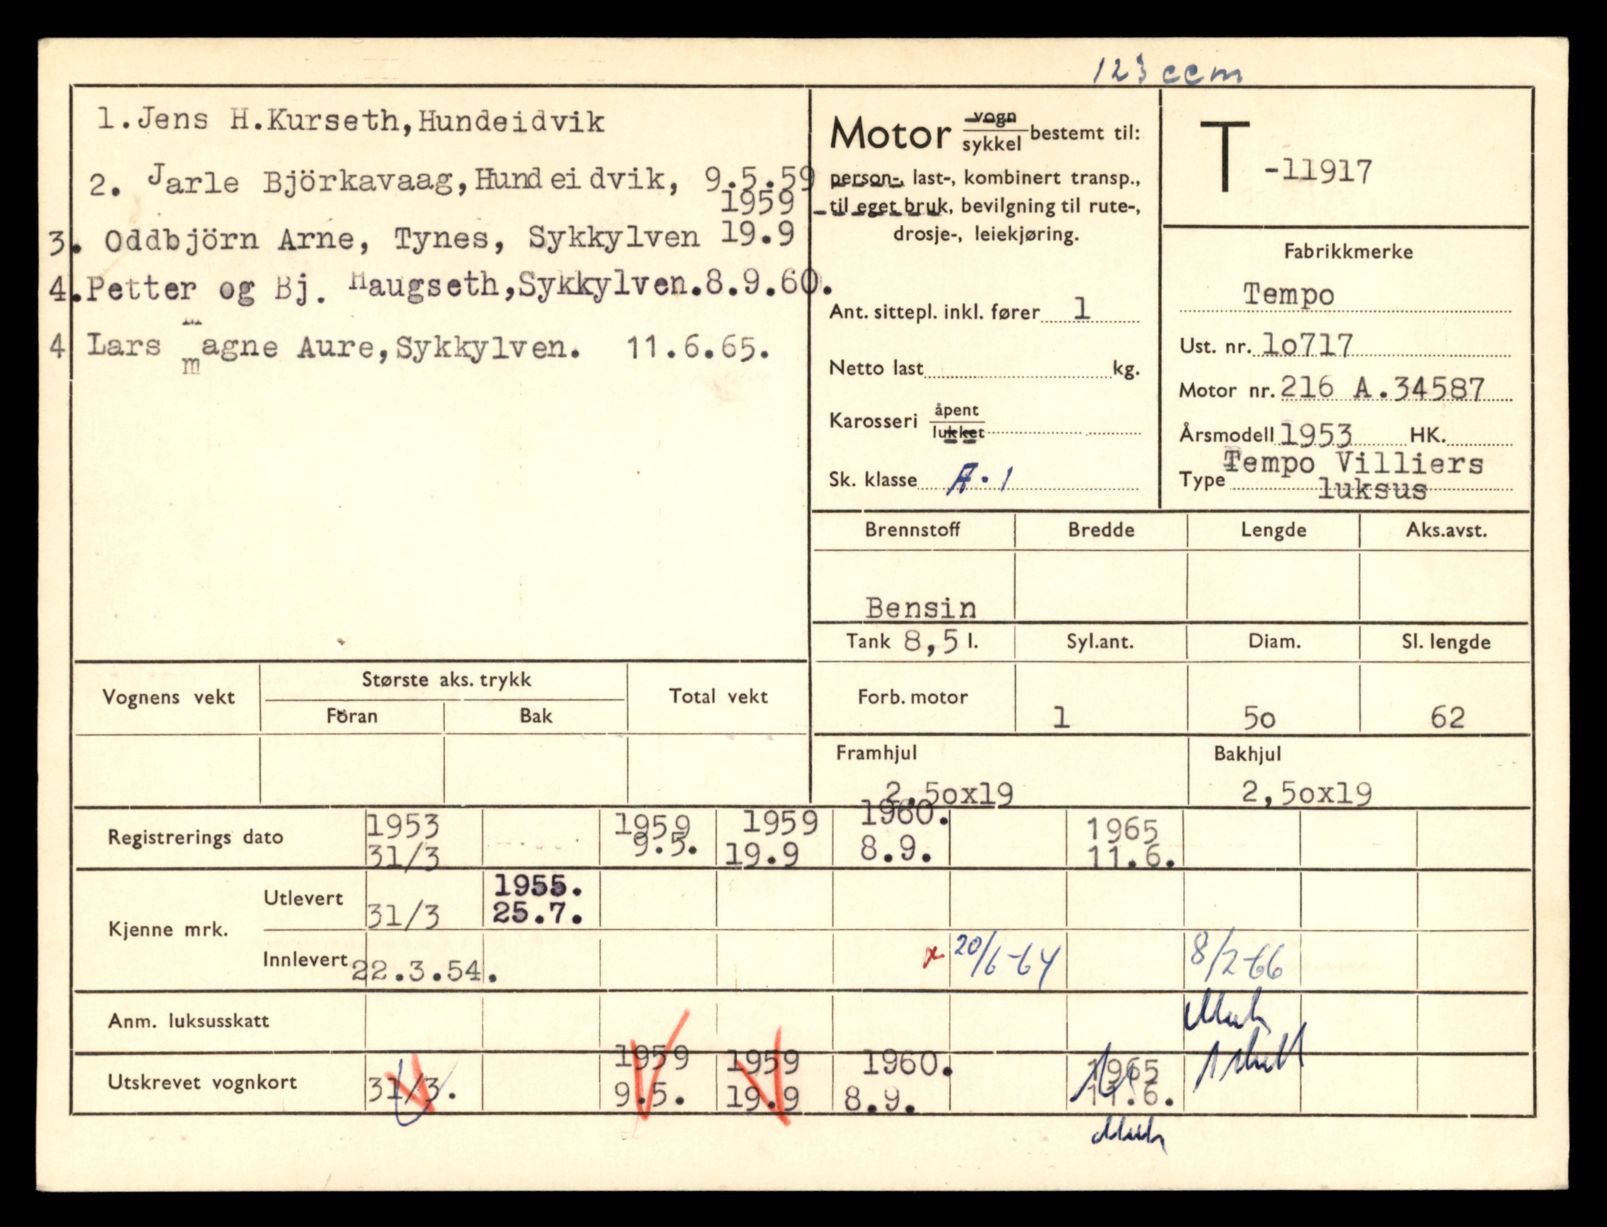 123 ccm
1.Jens H.Kurseth,Hundeidvik
2. Jarle Björkavaag,Hundeidvik, 9.5.59
1959
3. Oddbjörn Arne, Tynes, Sykkylven 19.9
4.Petter og Bj. Haugseth,Sykkylven.8.9.60.
4 Lars magne Aure,Sykkylven. 11.6.65.
Motor vogn/sykkel bestemt til:
person-, last-, kombinert transp.,
til eget bruk, bevilgning til rute-,
drosje-, leiekjøring.
Ant. sittepl. inkl. fører 1
Netto last kg.
Karosseri åpent/lukket
Sk. klasse A.1
T -11917
Fabrikkmerke
Tempo
Ust. nr. 1o717
Motor nr. 216 A.34587
Årsmodell 1953 HK.
Type Tempo Villiers
luksus
Brennstoff Bredde Lengde Aks.avst.
Bensin
Tank 8,5 l. Syl.ant. Diam. Sl. lengde
Forb. motor 1 5o 62
Framhjul Bakhjul
2,5ox19 2,5ox19
Vognens vekt Største aks. trykk Total vekt
Foran Bak
Registrerings dato 1953 1959 1959 1960. 1965
31/3 9.5. 19.9 8.9. 11.6.
Kjenne mrk. Utlevert 31/3 1955.
25.7.
Innlevert 22.3.54. x 20/6-64 8/2-66
Anm. luksusskatt
Utskrevet vognkort 31/3. 1959 1959 1960. 1965
9.5. 19.9 8.9. 11.6.